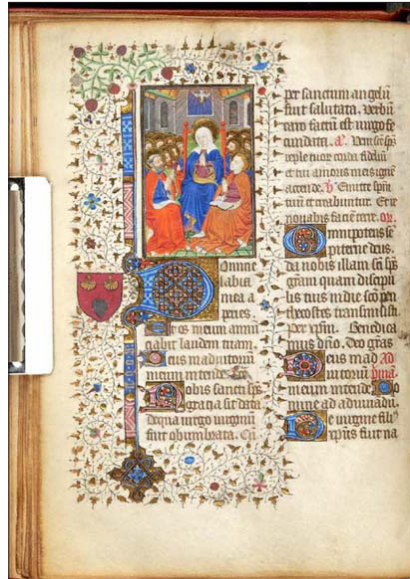 Domine
labia
mea a
peries.
Et os meum annū
tiabit laudem tuam.
Deus in adiutoriū
meum intende. Glo
Nobis sancti sp̄s
gracia sit data
de qua virgo virginū
fuit obumbrata. Cū
per sanctum angelū
fuit salutata. Verbū
caro factū est virgo fe
cundata. a. Veni sc̄e sp̄s
reple tuor corda fideliū
et tui amoris in eis ignē
accende. v. Emitte sp̄m
tuū et creabuntur. Et re
nouabis faciē terre. or.
Omnipotens se
piterne deus.
da nobis illam sc̄i sp̄s
grām quam discipu
lis tuis in die sc̄o pen
thecostes transmisisti.
per xp̄m. Benedica
mus dn̄o. Deo grās
Deus in ad Ad
iutoriū
meum intende Do
mine ad adiuuādū
De uirgine
xp̄us fuit na